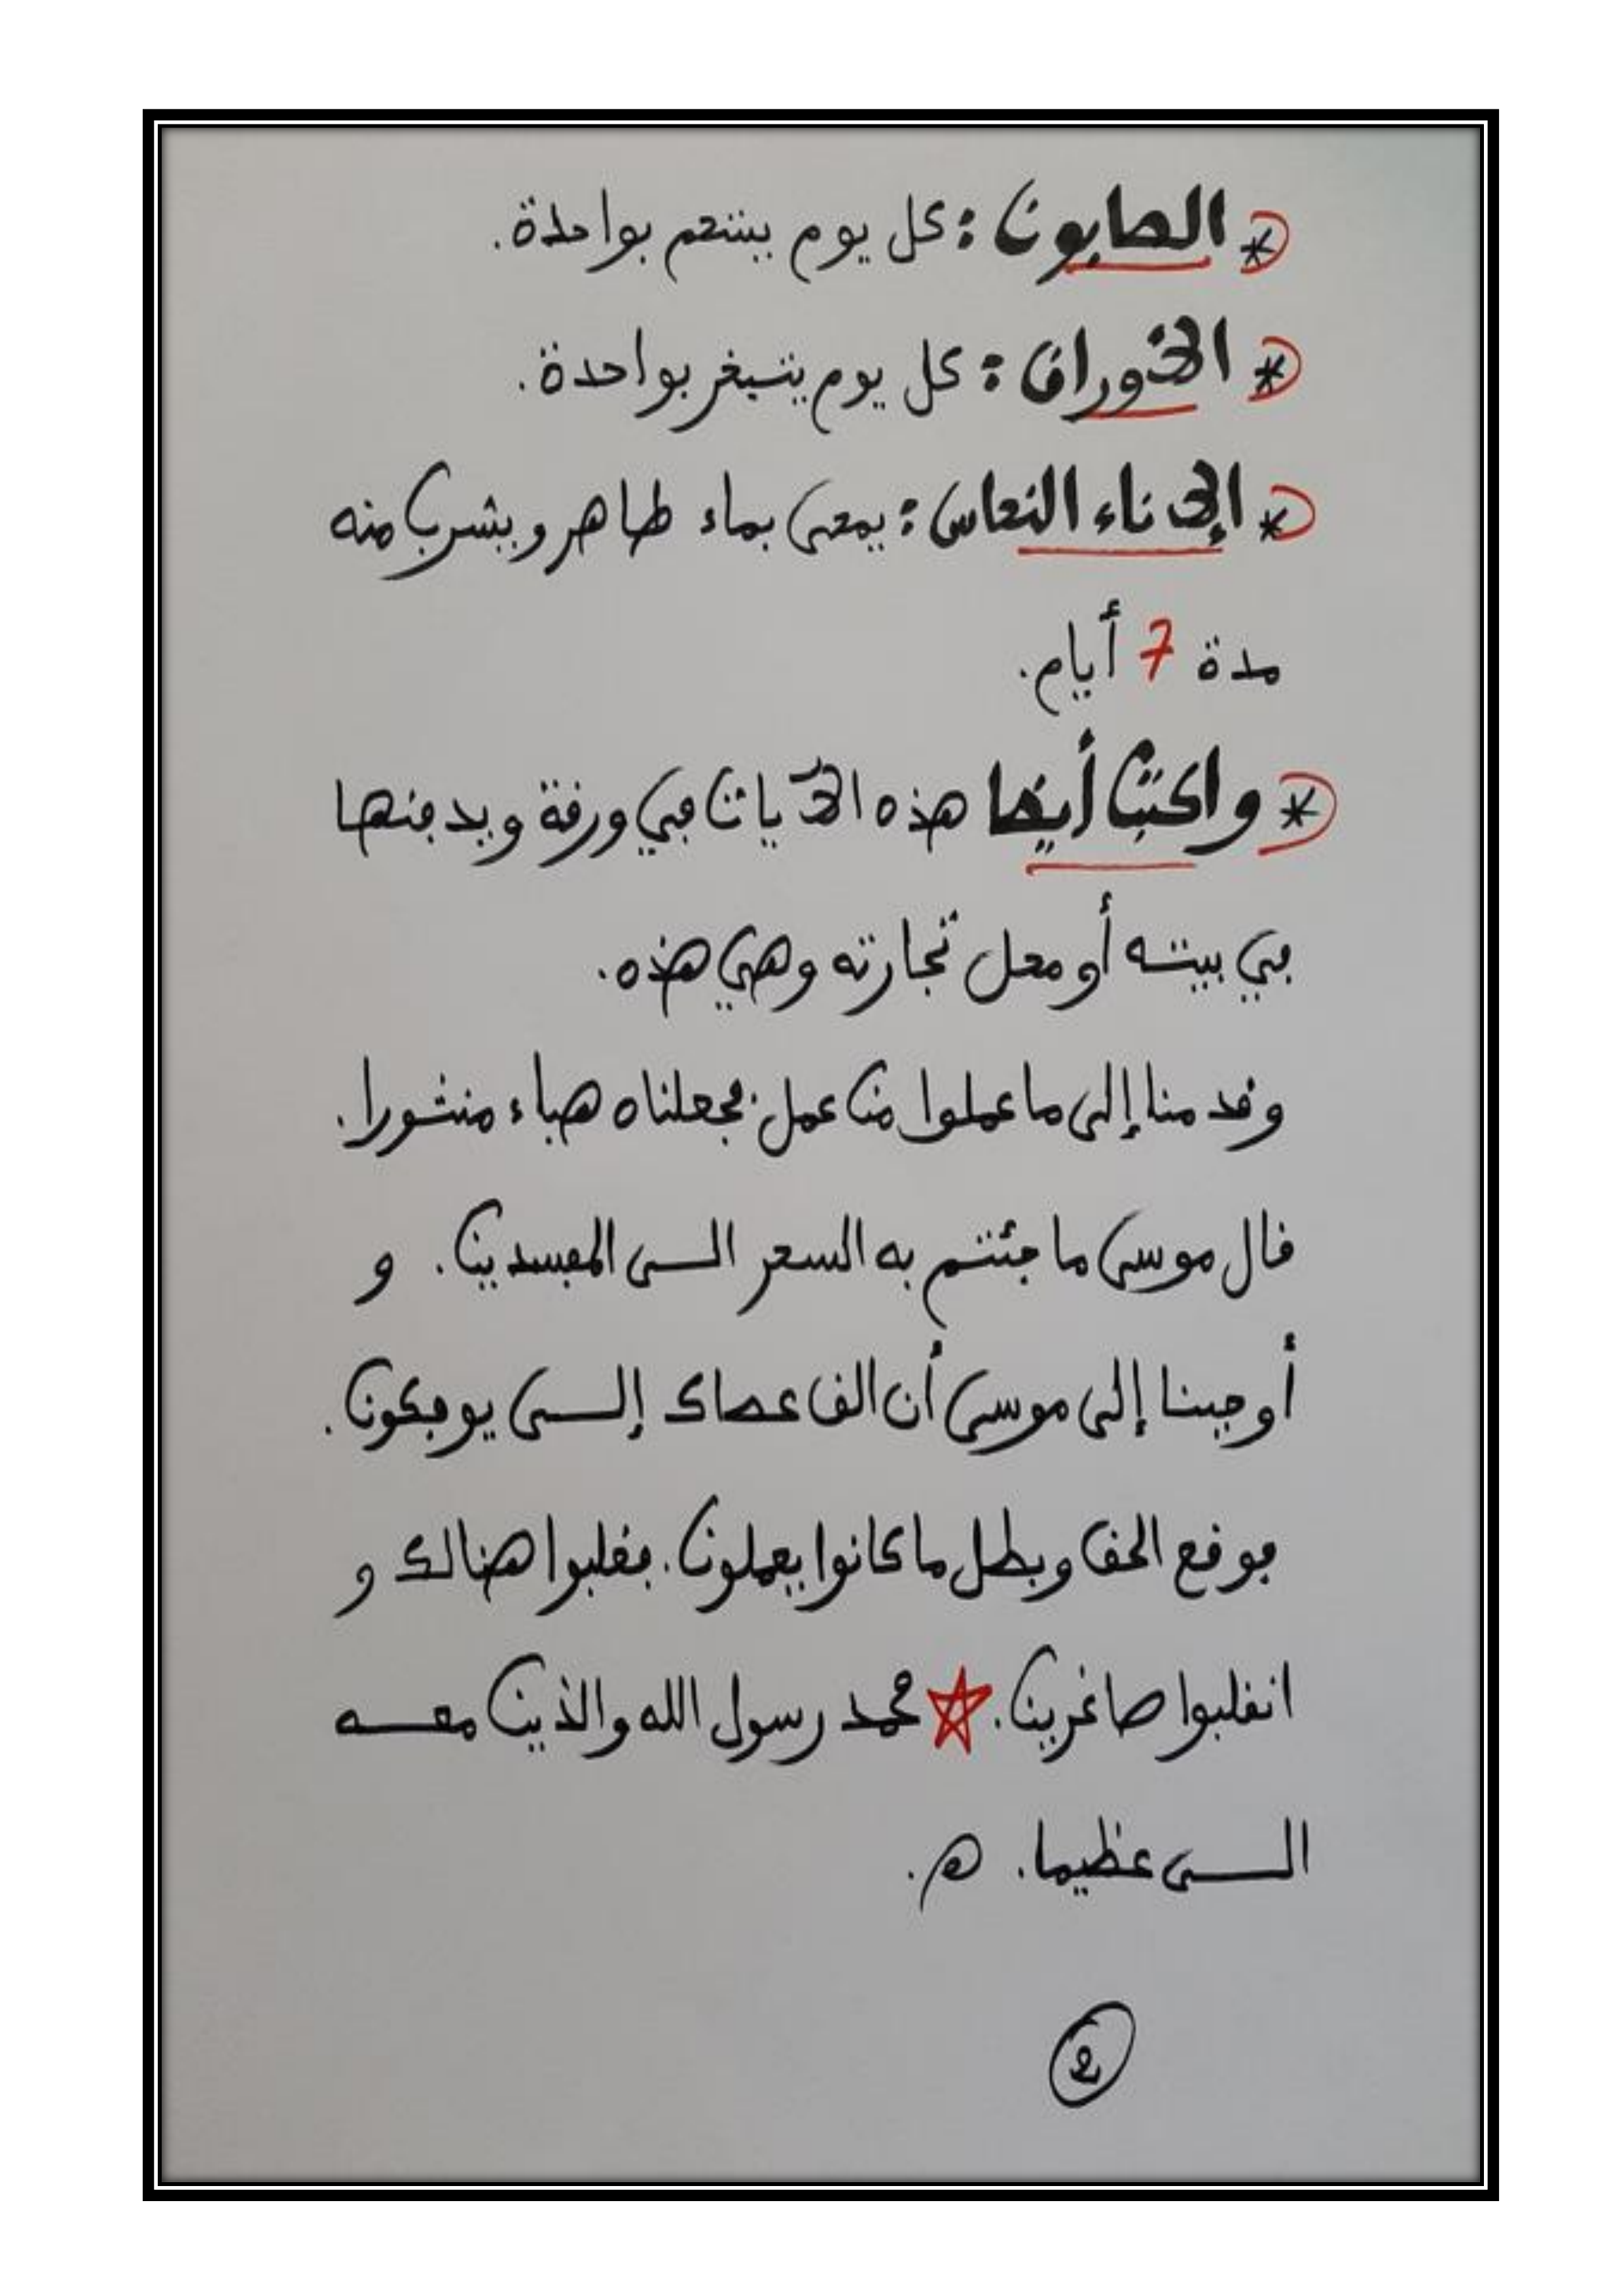 * الصابون : كل يوم يستحم بواحدة.
* الأوراق : كل يوم يتبخر بواحدة.
* الإناء النحاس : يمحى بماء طاهر ويشرب منه
مدة 7 أيام.
* واكتب أيضا هذه الآيات في ورقة ويدفنها
في بيته أو محل تجارته وهي هذه.
وقدمنا إلى ما عملوا من عمل فجعلناه هباء منثورا.
قال موسى ما جئتم به السحر الــى المفسدين. و
أوحينا إلى موسى أن الق عصاك إلــى يوفكون.
فوقع الحق وبطل ما كانوا يعملون. فغلبوا هنالك و
انقلبوا صاغرين. محمد رسول الله والذين معــه
الــى عظيما. هـ.
2